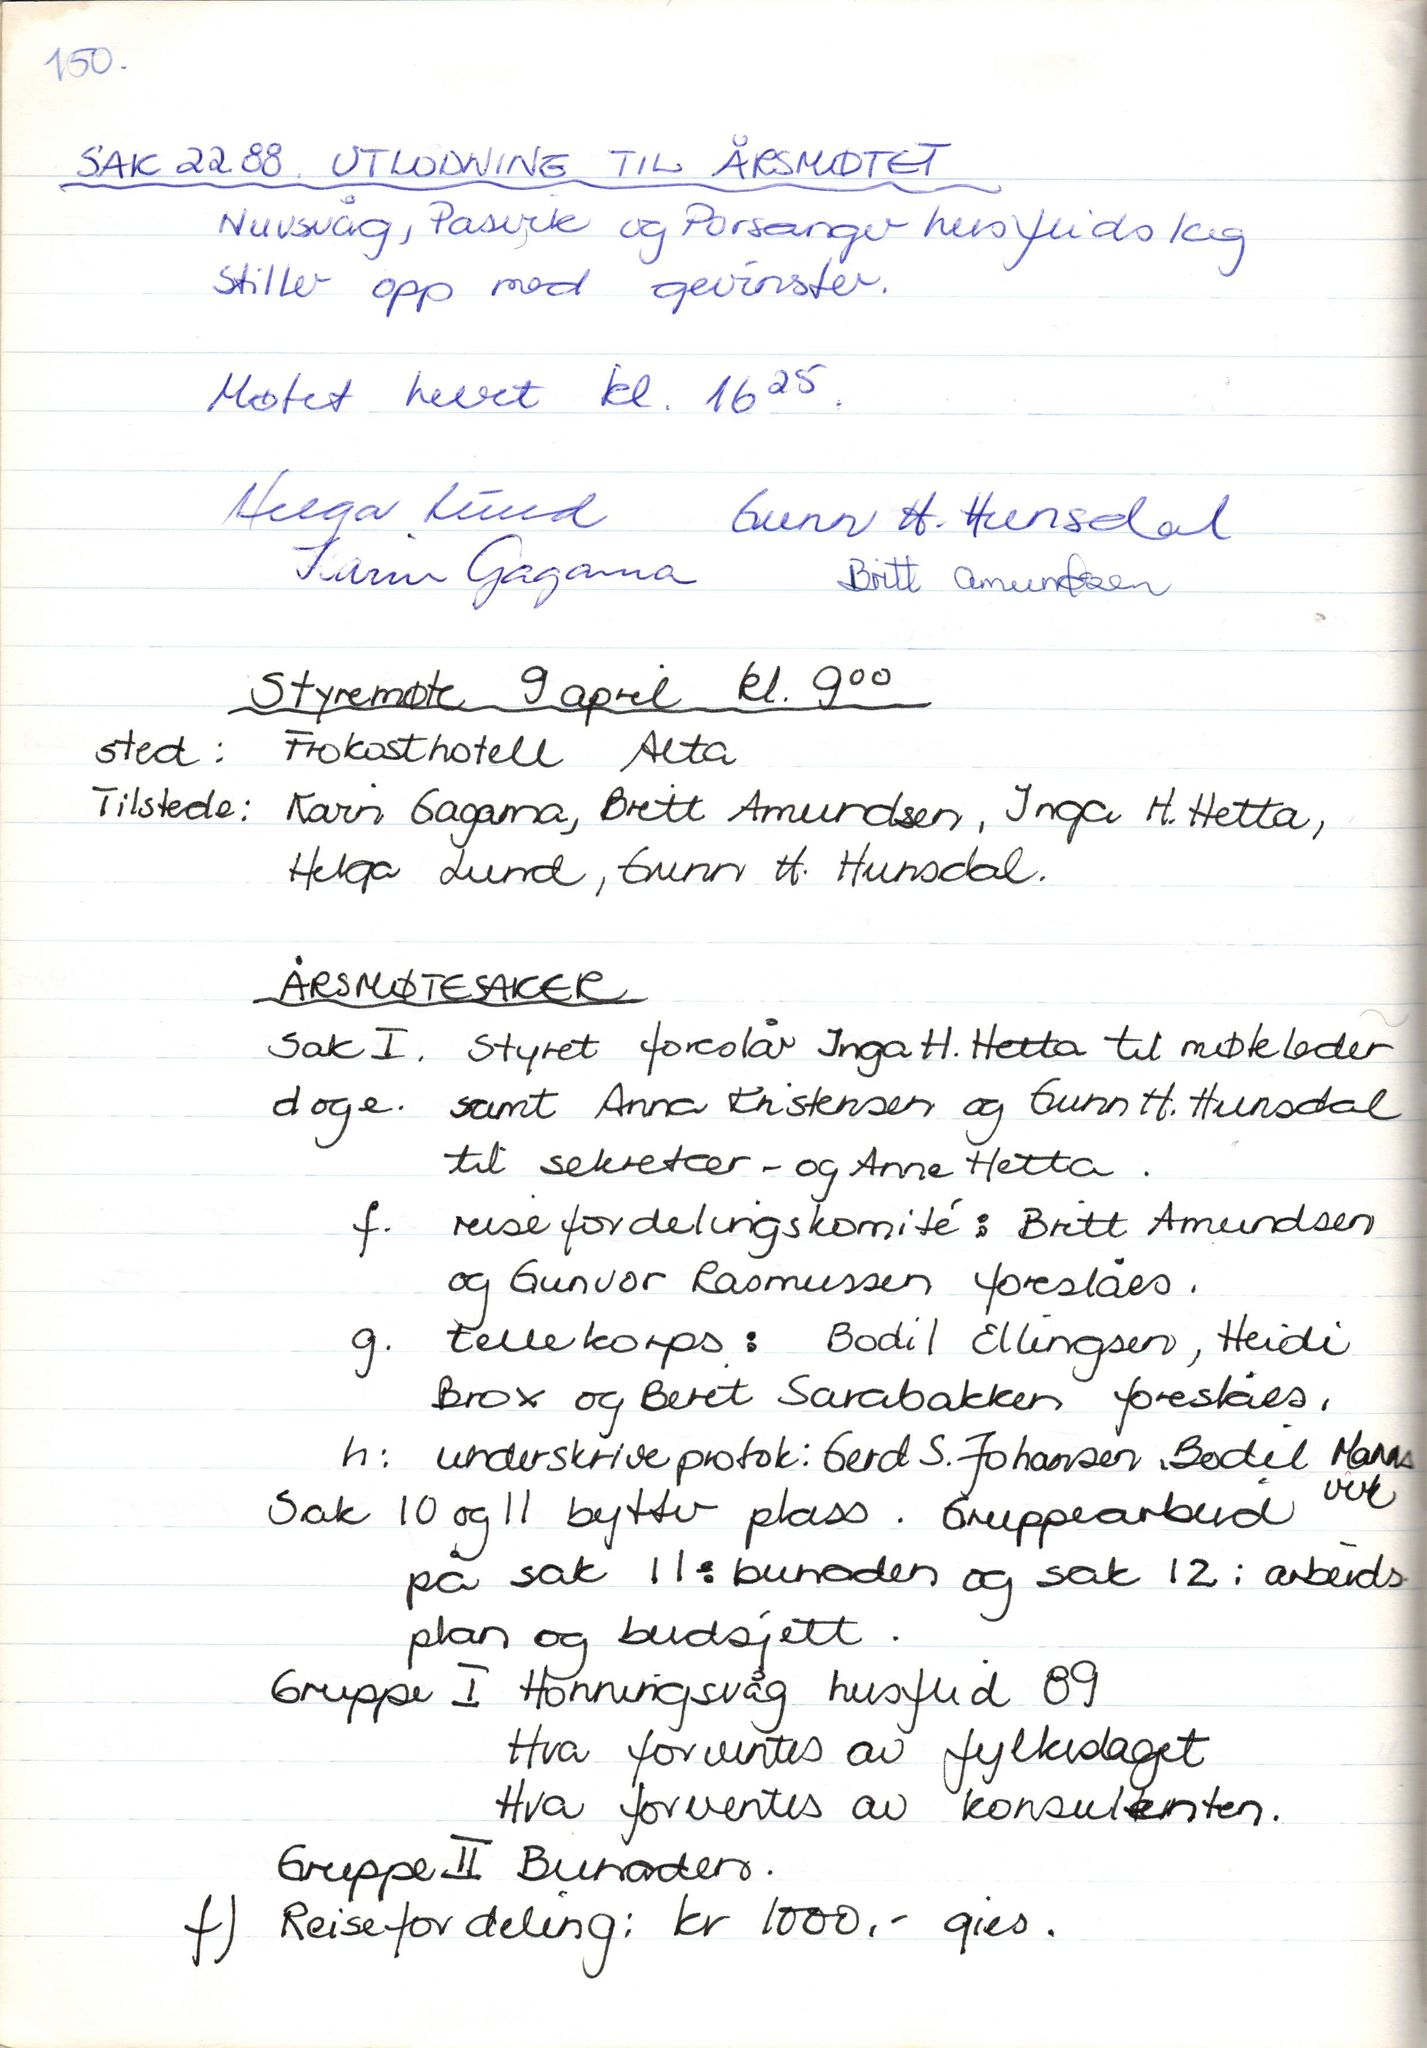 150.
SAK 22 88. UTLODNING TIL ÅRSMØTET
Nuvsvåg, Pasvik og Porsanger husflidslag
stiller opp med gevinster.
Møtet hevet kl. 16 25.
Helga Lund Gunn H. Hunsdal
Karin Gagama Britt Amundsen
Styremøte 9 april kl. 9 00
sted: Frokosthotell Alta
Tilstede: Karin Gagama, Britt Amundsen, Inga H. Hetta,
Helga Lund, Gunn H. Hunsdal.
ÅRSMØTESAKER
Sak I. Styret foreslår Inga H. Hetta til møteleder
d og e. samt Anna Kristensen og Gunn H. Hunsdal
til sekretær - og Anne Hetta.
f. reisefordelingskomité: Britt Amundsen
og Gunvor Rasmussen foreslåes.
g. tellekorps: Bodil Ellingsen, Heidi
Brox og Beret Sarabakken foreslåes.
h: underskrive protok: Gerd S. Johansen, Bodil Manns
vik
Sak 10 og 11 bytter plass. Gruppearbeid
på sak 11: bunaden og sak 12: arbeids
plan og budsjett.
Gruppe I Honningsvåg husflid 89
Hva forventes av fylkeslaget
Hva forventes av konsulenten.
Gruppe II Bunaden.
f) Reisefordeling: kr 1000.- gies.